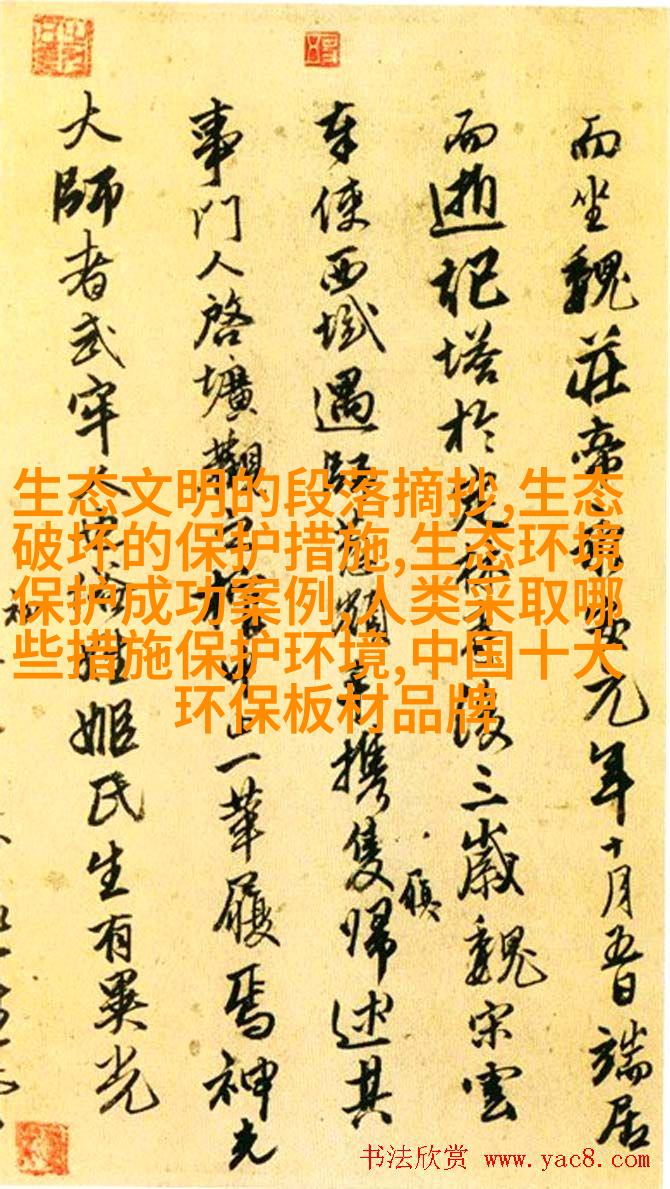 而坐魏莊帝元年十月五日端居
而逝記塔於後三歲魏宋雲
奉使西域遇携隻歸述其
履
事門人啓壙觀一革履焉神光
大師者武牢人姬氏生有異光
生态文明的段落摘抄,生态
破坏的保护措施,生态环境
保护成功案例,人类采取哪
些措施保护环境,中国十大
环保板材品牌
书法欣赏 www.yac8.com